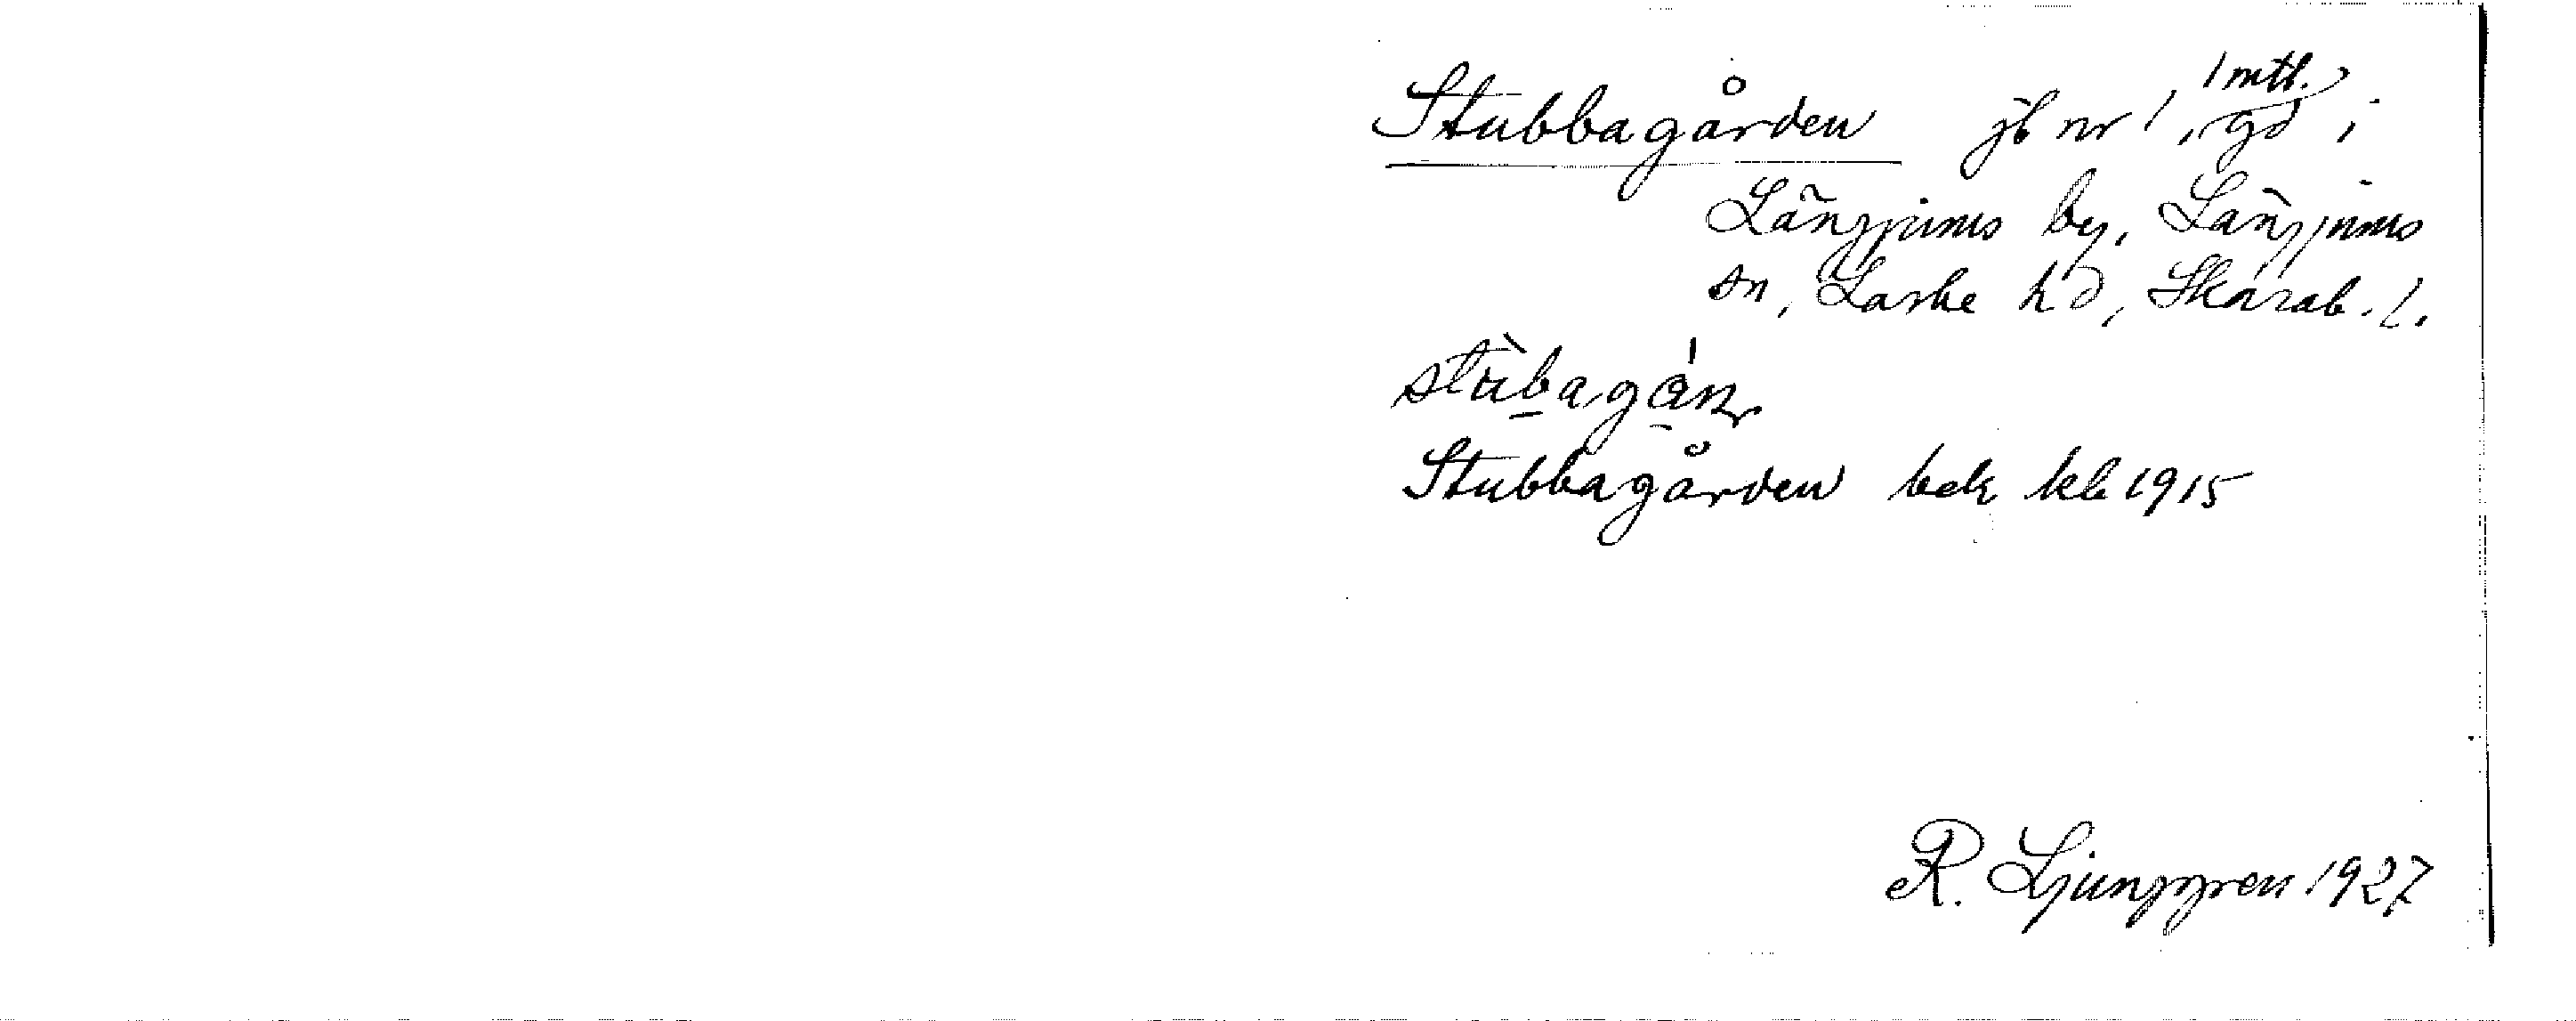 Stubbagården jb nr 1, 1 mtl. gd i
Längjums by, Längjums
sn, Laske hd, Skarab. l.
stùbagán
Stubbagården bek kb 1915
R. Ljunggren 1927